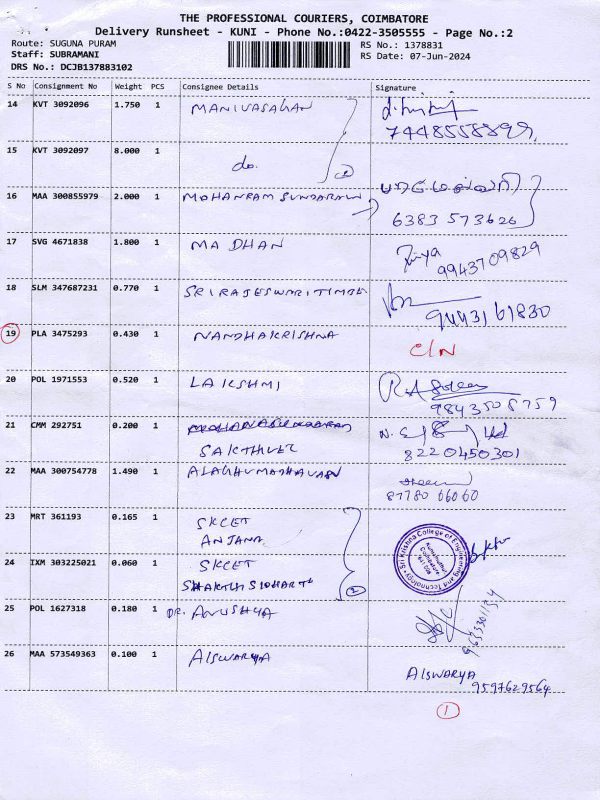 THE PROFESSIONAL COURIERS, COIMBATORE
Delivery Runsheet - KUNI - Phone No.:0422-3505555 - Page No.:2
Route: SUGUNA PURAM
RS No.: 1378831
Staff: SUBRAMANI
RS Date: 07-Jun-2024
DRS No.: DCJB137883102
S No Consignment No Weight PCS Consignee Details Signature
14 KVT 3092096 1.750 1 MANIVASAGAN
7448558899
15 KVT 3092097 8.000 1 do. 2
16 MAA 300855979 2.000 1 MOHANRAM SUNDARAM
6383573626
17 SVG 4671838 1.800 1 MADHAN
9943709829
18 SLM 347687231 0.770 1 SRIRAJESWARITIMBE
9443161830
19 PLA 3475293 0.430 1 NANDHAKRISHNA C/N
20 POL 1971553 0.520 1 LAKSHMI
9843508759
21 CMM 292751 0.200 1
SAKTHIVEL 8220450301
22 MAA 300754778 1.490 1 ALAGHUMADHAVAN
87780 66060
23 MRT 361193 0.165 1 SKCET
ANJANA
24 IXM 303225021 0.060 1 SKCET
SHAKTHI SIDHARTH 2
Sri Krishna College of Engineering and Technology
Kuniamuthur Coimbatore 641 008
25 POL 1627318 0.180 1 DR. ANUSHYA
26 MAA 573549363 0.100 1 AISWARYA
AISWARYA
9597629564
1